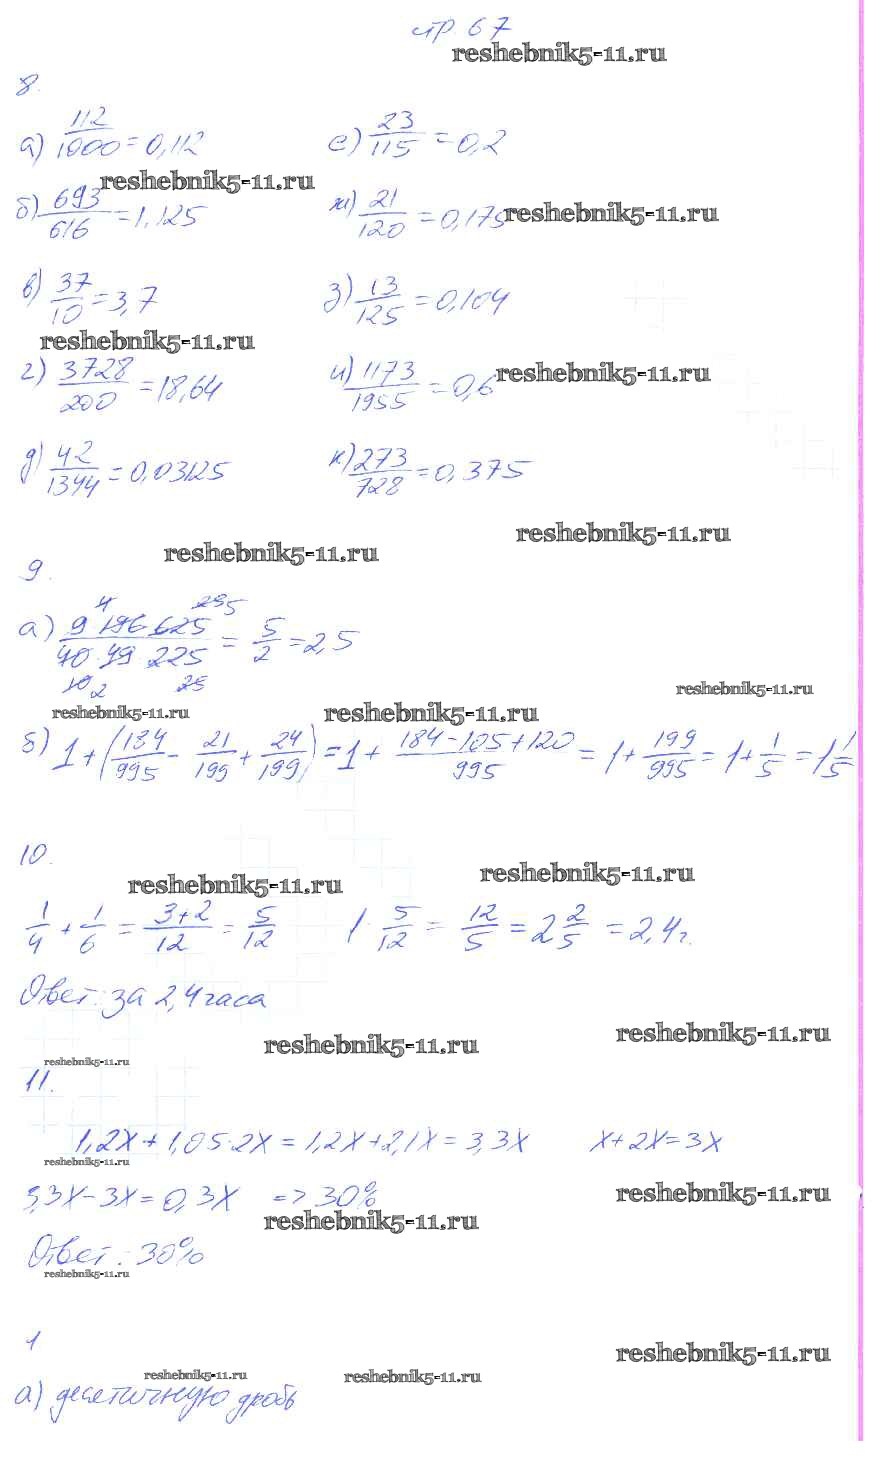 стр. 67
reshebnik5-11.ru
8.
а) 112/1000 = 0,112
е) 23/115 = 0,2
reshebnik5-11.ru
б) 693/616 = 1,125
ж) 21/120 = 0,175
reshebnik5-11.ru
в) 37/10 = 3,7
з) 13/125 = 0,104
reshebnik5-11.ru
г) 3728/200 = 18,64
и) 1173/1955 = 0,6
reshebnik5-11.ru
д) 42/1344 = 0,03125
к) 273/728 = 0,375
reshebnik5-11.ru
reshebnik5-11.ru
9.
4 25 5
а) 9 196 625 / 40·49 225 = 5/2 = 2,5
10 2 25
reshebnik5-11.ru
reshebnik5-11.ru
reshebnik5-11.ru
б) 1 + (184/995 - 21/199 + 24/199) = 1 + 184-105+120/995 = 1 + 199/995 = 1 + 1/5 = 1 1/5
10.
reshebnik5-11.ru
reshebnik5-11.ru
1/4 + 1/6 = 3+2/12 = 5/12 1 : 5/12 = 12/5 = 2 2/5 = 2,4 г.
Ответ: за 2,4 часа
reshebnik5-11.ru
reshebnik5-11.ru
reshebnik5-11.ru
11.
1,2х + 1,05·2х = 1,2х + 2,1х = 3,3х х + 2х = 3х
reshebnik5-11.ru
3,3х - 3х = 0,3х => 30%
reshebnik5-11.ru
reshebnik5-11.ru
Ответ: 30%
reshebnik5-11.ru
1
reshebnik5-11.ru
reshebnik5-11.ru
reshebnik5-11.ru
а) десятичную дробь